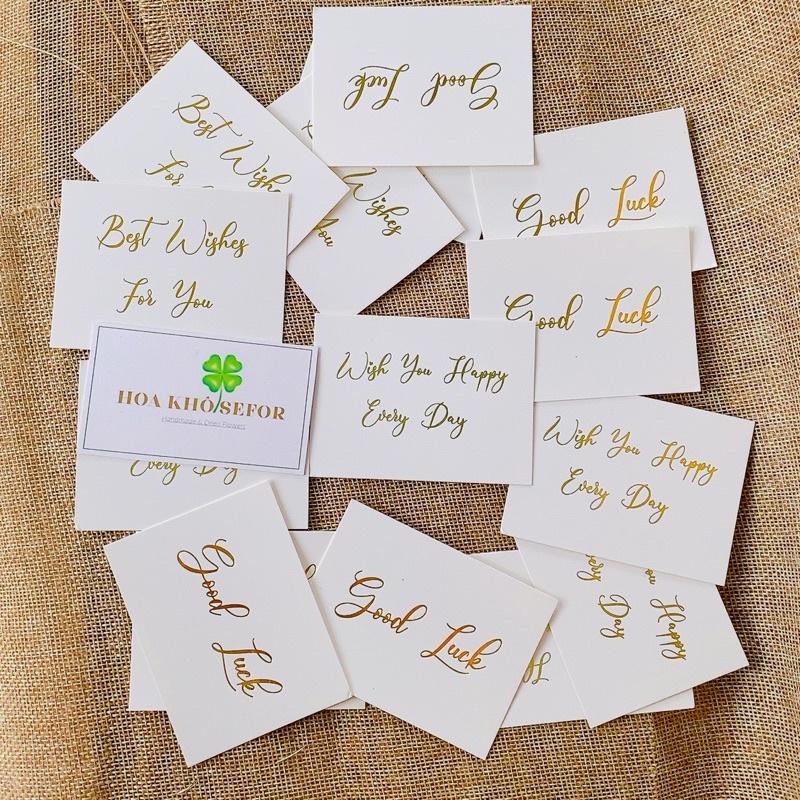 Good Luck
Best Wish
For
Wishes
You
Good Luck
Best Wishes
For You
Good Luck
HOA KHÔ SEFOR
Handmade & Dried Flowers
Every Day
Wish You Happy
Every Day
Wish You Happy
Every Day
Good
Luck
Good Luck
You Happy
Every
Day